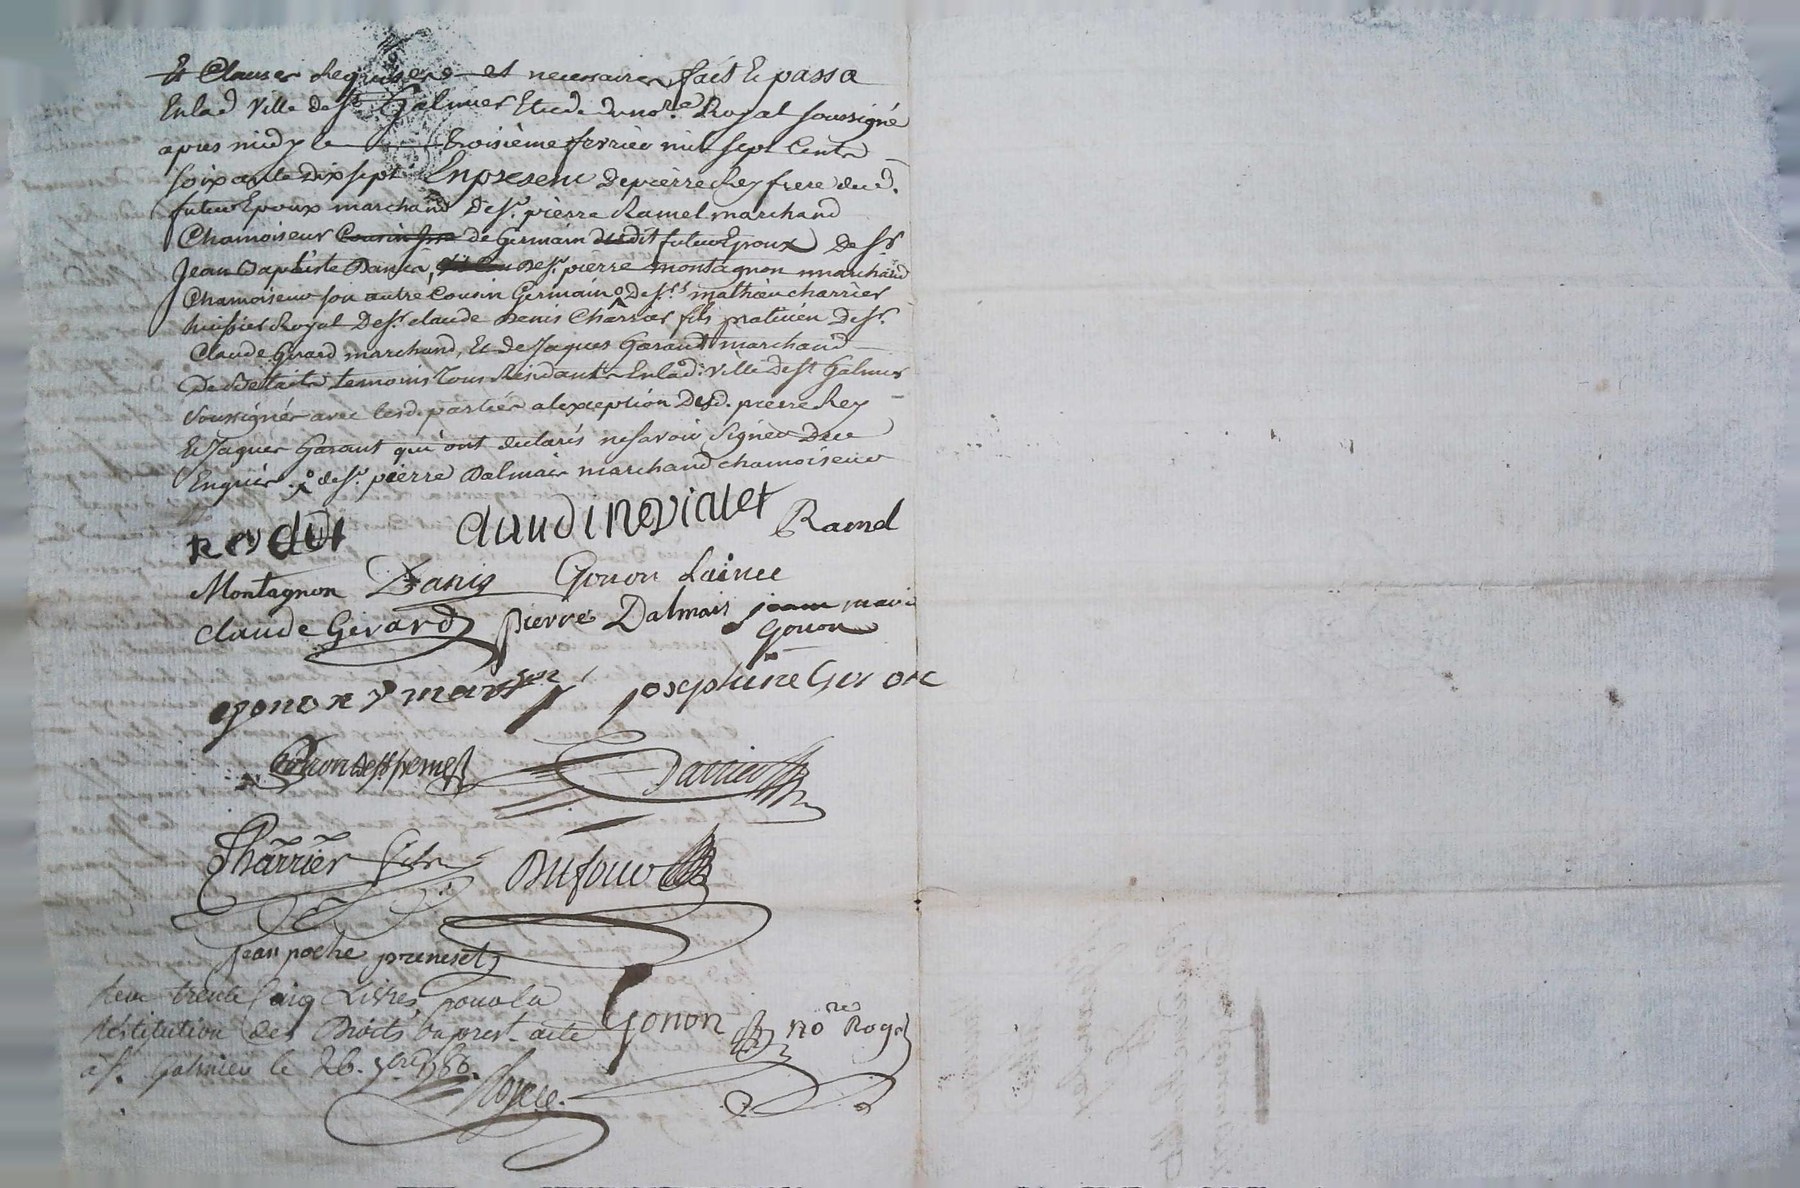 Et Clauses Requises et necessaires fait et passé
En lad. Ville de St. Galmier Etude du nore. Royal soussigné
apres midy le troisième fevrier mil sept Cents
soixante dix sept En presence de pierre Rey frere dud.
futur Epoux marchand de Sr. pierre Ramel marchand
Chamoiseur Cousin de Germain dudit futur Epoux de Sr
Jean Baptiste Danis, de Sr. pierre montagnon marchand
Chamoiseur son autre Cousin Germain de Srs mathieu charrier
huissier Royal de Sr. claude denis Charrier fils praticien de Sr.
Claude Girard marchand, Et de Jaques Garant marchand
temoins Tous Residants En lad. ville de St Galmier
soussignés avec lesd. parties a lexception dud. pierre Rey
Et Jaques Garant qui ont declarés ne savoir Signer de ce
Enquis. de Sr. pierre Dalmais marchand chamoiseur
Rey claudine vialet Ramel
Montagnon Danis Gonon Lainee
Claude Girard pierre Dalmais jeann marie
Gonon
josephine
Charrier fils Dufour
jean poche pruneret
Recu trente Cinq Livres pour la
Restitution des Droits du prest. acte Gonon nore Royal
a St. Galmier le 26. 1786.